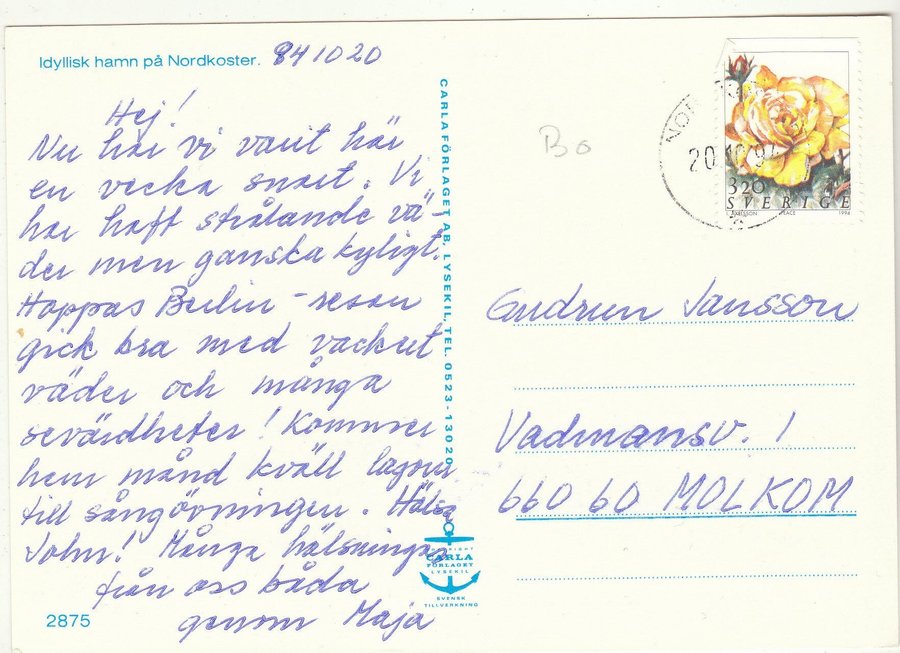 Idyllisk hamn på Nordkoster. 841020
Hej!
Nu har vi varit här
en vecka snart. Vi
har haft strålande vä-
der men ganska kyligt.
Hoppas Berlin-resan
gick bra med vackert
väder och många
sevärdheter! Kommer
hem månd kväll lagom
till sångövningen. Hälsa
John! Många hälsningar
från oss båda
genom Maja
2875
CARLA FÖRLAGET AB, LYSEKIL, TEL. 0523-13020
CARLA
FÖRLAGET
LYSEKIL
SVENSK
TILLVERKNING
Bo
20.10.94
320
SVERIGE
PEACE 1994
Gudrun Jansson
Vadmansv. 1
660 60 MOLKOM